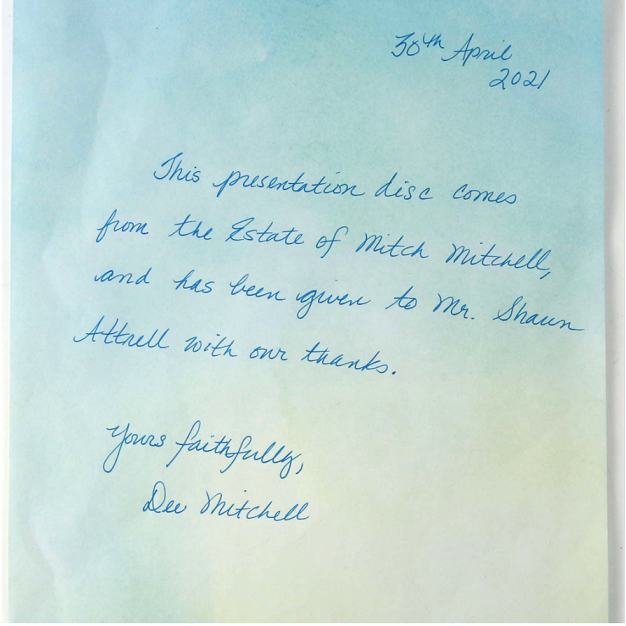 30th April
2021
This presentation disc comes
from the Estate of Mitch Mitchell,
and has been given to Mr. Shaun
Attrell with our thanks.
Yours faithfully,
Dee Mitchell